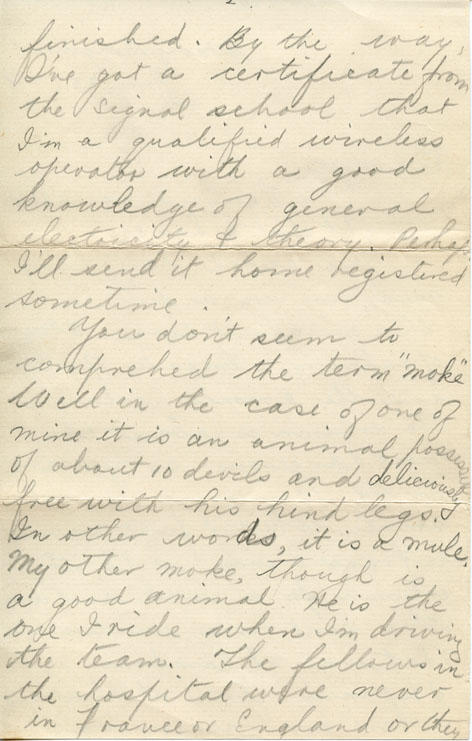 2
finished. By the way,
I've got a certificate from
the signal school that
I'm a qualified wireless
operator with a good
knowledge of general
electricity & theory. Perhap
I'll send it home registered
sometime.
You don't seem to
comprehed the term "moke"
Well in the case of one of
mine it is an animal possessed
of about 10 devils and deliciously
free with his hind legs.
In other words, it is a mule.
My other moke, though is
a good animal. He is the
one I ride when I'm driving
the team. The fellows in
the hospital were never
in France or England or they